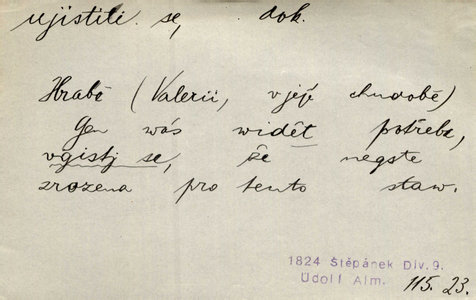 ujistiti se, dok.
Hrabě (Valerii, v její chudobě)
Gen wás widět potřeba,
vgistj se, že negste
zrozena pro tento staw.
1824 Štěpánek Div. 9.
Údolí Alm. 115. 23.